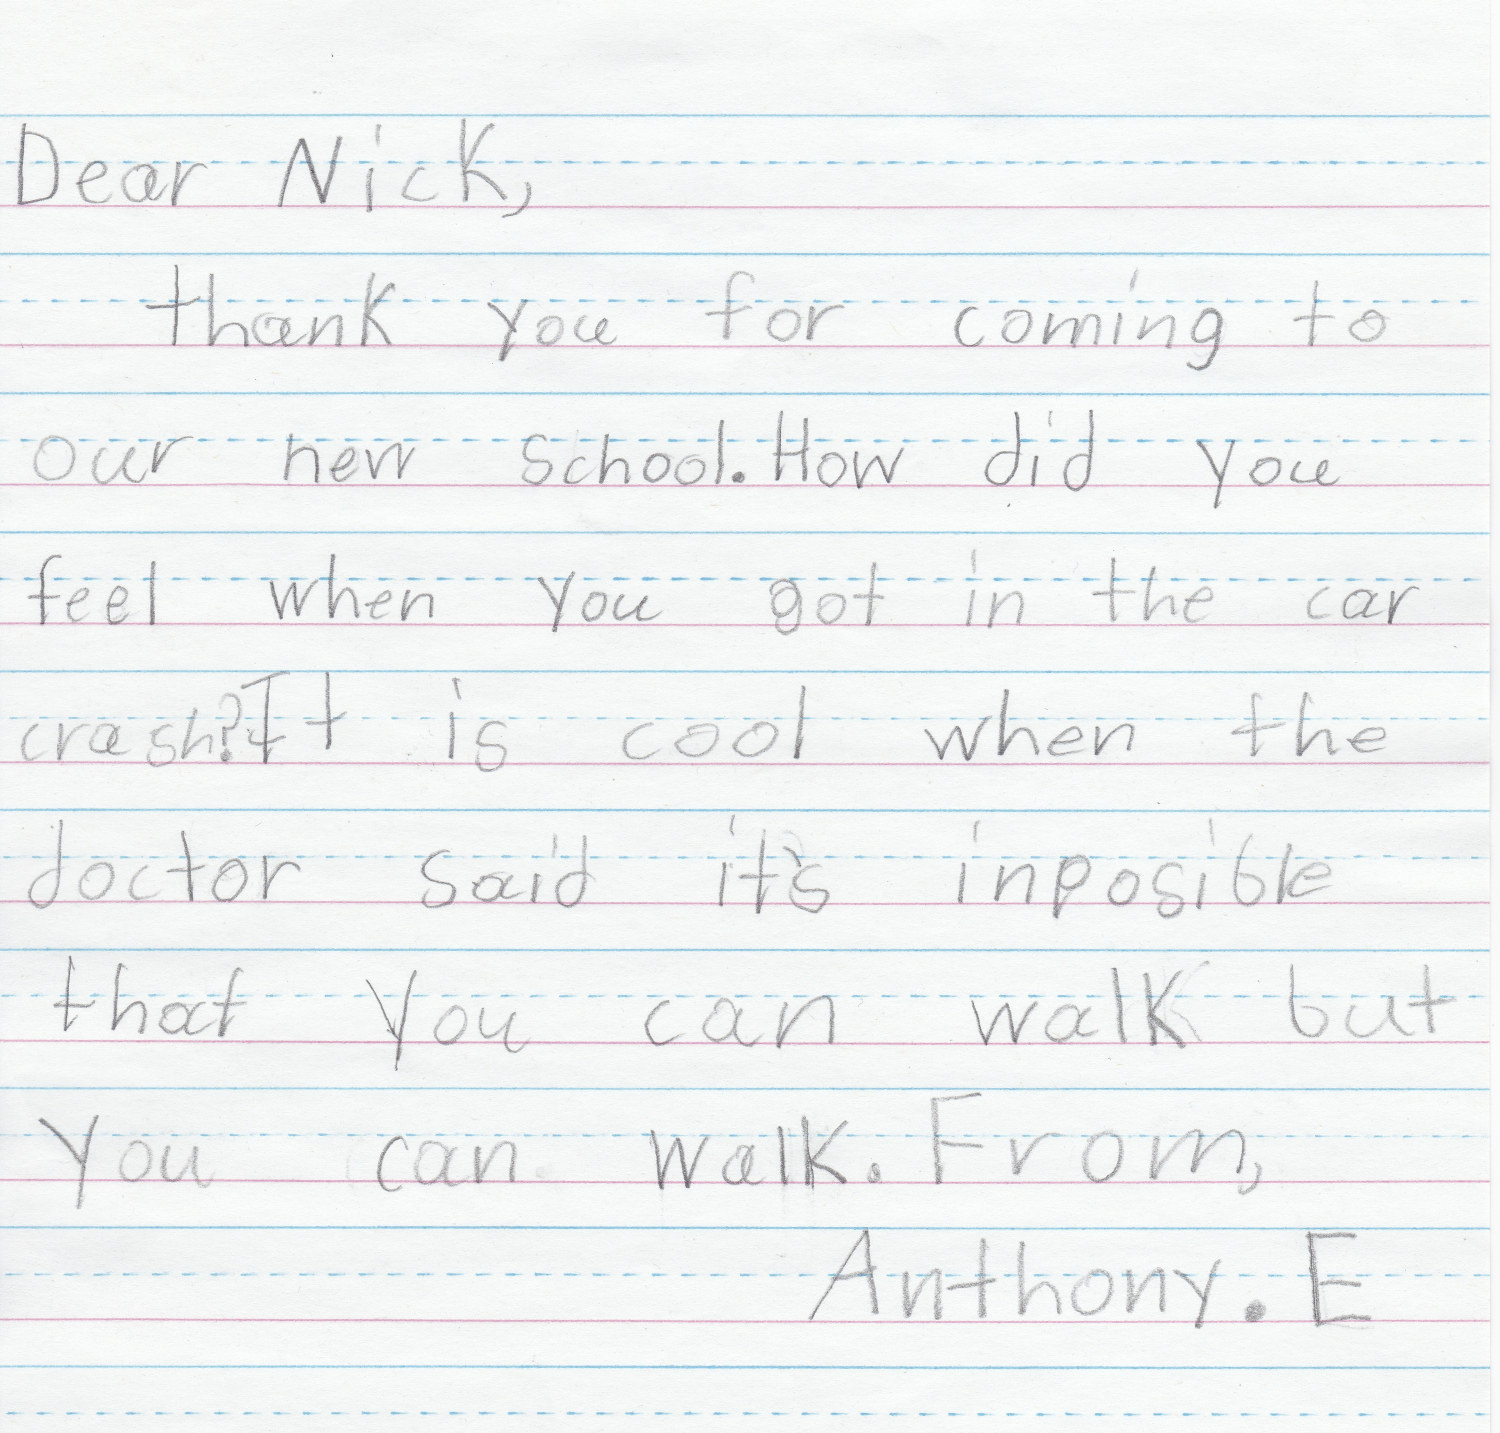 Dear Nick,
thank you for coming to
our new school. How did you
feel when you got in the car
crash? It is cool when the
doctor said it's inposible
that you can walk but
you can walk. From,
Anthony. E